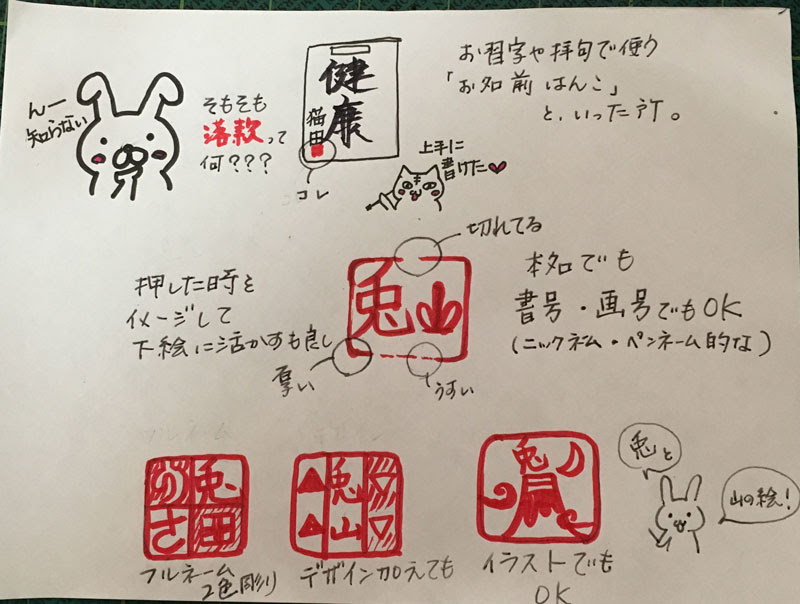 んー
知らない
そもそも
落款って
何???
健康
猫田
コレ
上手に
書けた
お習字や拝句で使う
「お名前はんこ」
と、いった所。
切れてる
押した時を
イメージして
下絵に活かすも良し
兎山
厚い
うすい
本名でも
書号・画号でもOK
(ニックネーム・ペンネーム的な)
兎田
さ
フルネーム
2色彫り
兎山
デザイン加えても
兎
イラストでも
OK
兎と
山の絵!